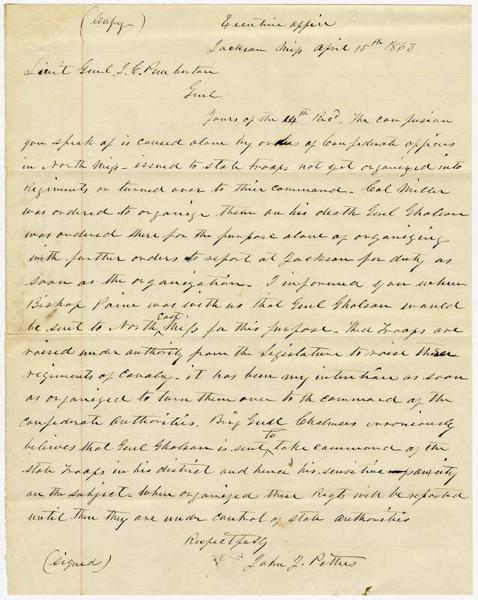 (Copy)
Executive office
Jackson Miss April 15th 1863
Lieut Genl J. C. Pemberton
Genl
Yours of the 14th Recd. The confusion
you speak of is caused alone by orders of Confederate officers
in North Miss - issued to state troops not yet organized into
Regiments or turned over to their command - Col Miller
was ordered to organize them on his death Genl Gholson
was ordered there for the purpose alone of organizing
with further orders to report at Jackson for duty as
soon as the organization - I informed you when
Bishop Paine was with us that Genl Gholson would
be sent to North East Miss for this purpose - These Troops are
raised under authority from the Legislature to raise these
regiments of Cavalry - it has been my intention as soon
as organized to turn them over to the command of the
confederate Authorities. Brig Genl Chalmers erroniously
believes that Genl Gholson is sent to take command of the
state troops in his district and hence his sensitive
on the subject - When organized these Regts will be reported
until then they are under control of state authorities
Respectfully
(signed) John J. Pettus